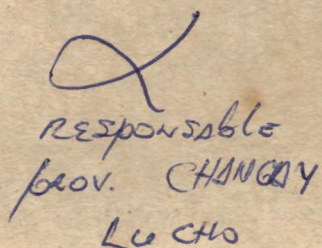 RESPONSABLE
PROV. CHANCAY
LUCHO